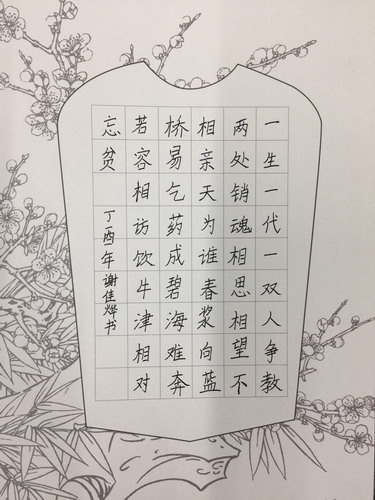 一生一代一双人争教
两处销魂相思相望不
相亲天为谁春浆向蓝
桥易乞药成碧海难奔
若容相访饮牛津相对
忘贫
丁酉年谢佳烨书